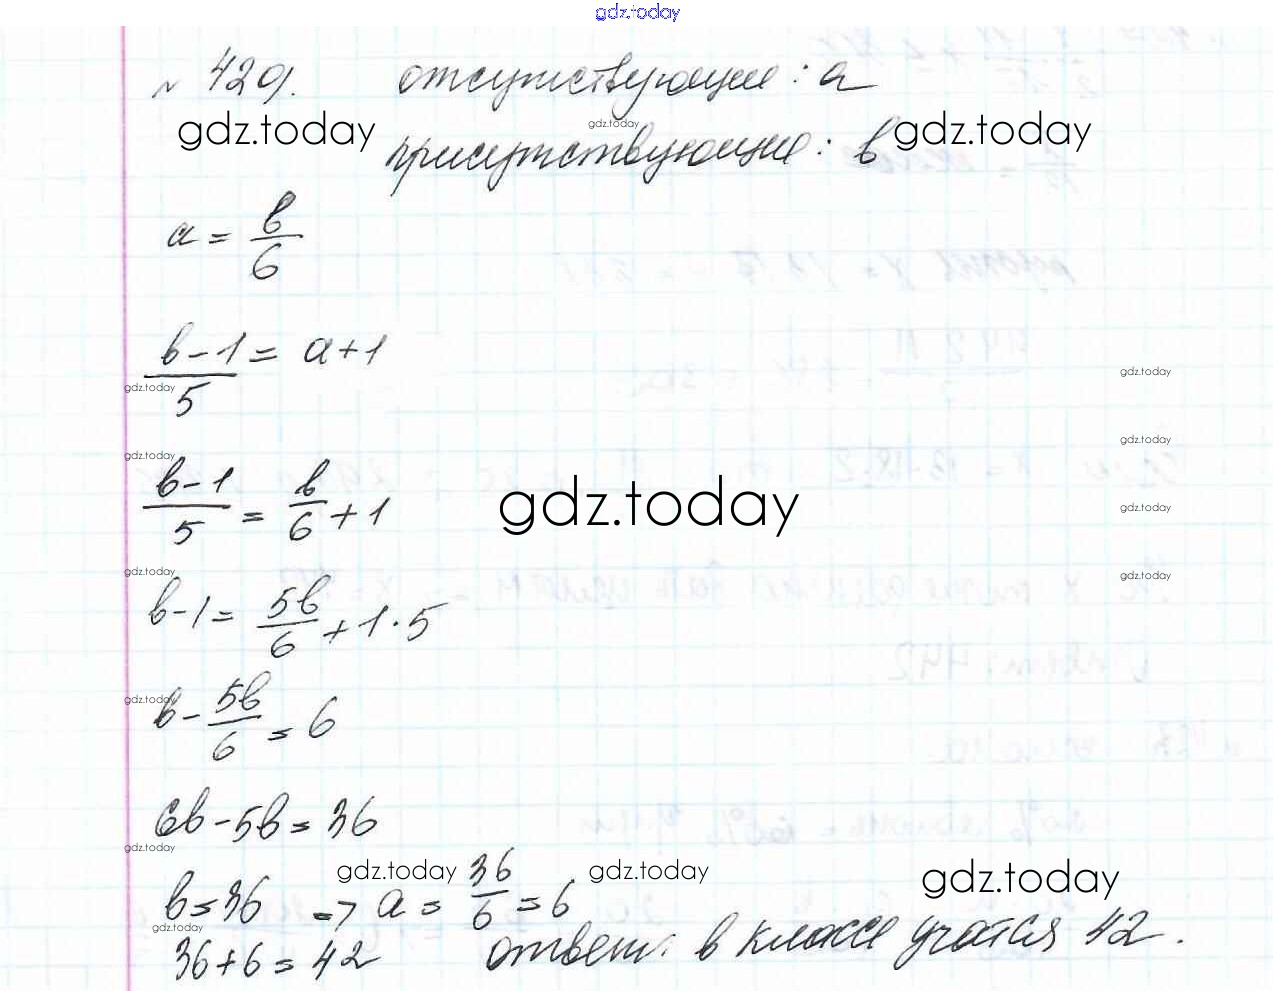 gdz.today
№ 429. отсутствующие : a
gdz.today gdz.today gdz.today
присутствующие : b
a = b/6
(b-1)/5 = a+1
gdz.today gdz.today
gdz.today gdz.today
(b-1)/5 = b/6 + 1
gdz.today gdz.today
gdz.today gdz.today
b-1 = 5b/6 + 1·5
gdz.today
b - 5b/6 = 6
6b - 5b = 36
gdz.today
gdz.today gdz.today gdz.today
b = 36 => a = 36/6 = 6
gdz.today
36+6 = 42 ответ: в классе учатся 42.